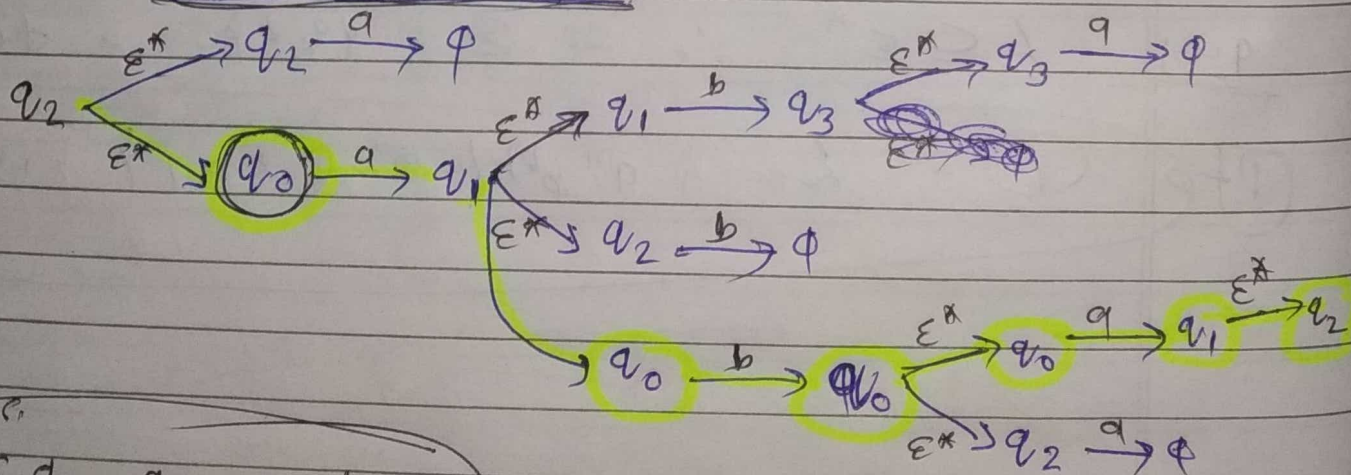 q2 ε* q2 a φ
ε* q0 a q1
ε* q1 b q3 ε* q3 a φ
ε* φ
ε* q2 b φ
q0 b q0 ε* q0 a q1 ε* q2
ε* q2 a φ